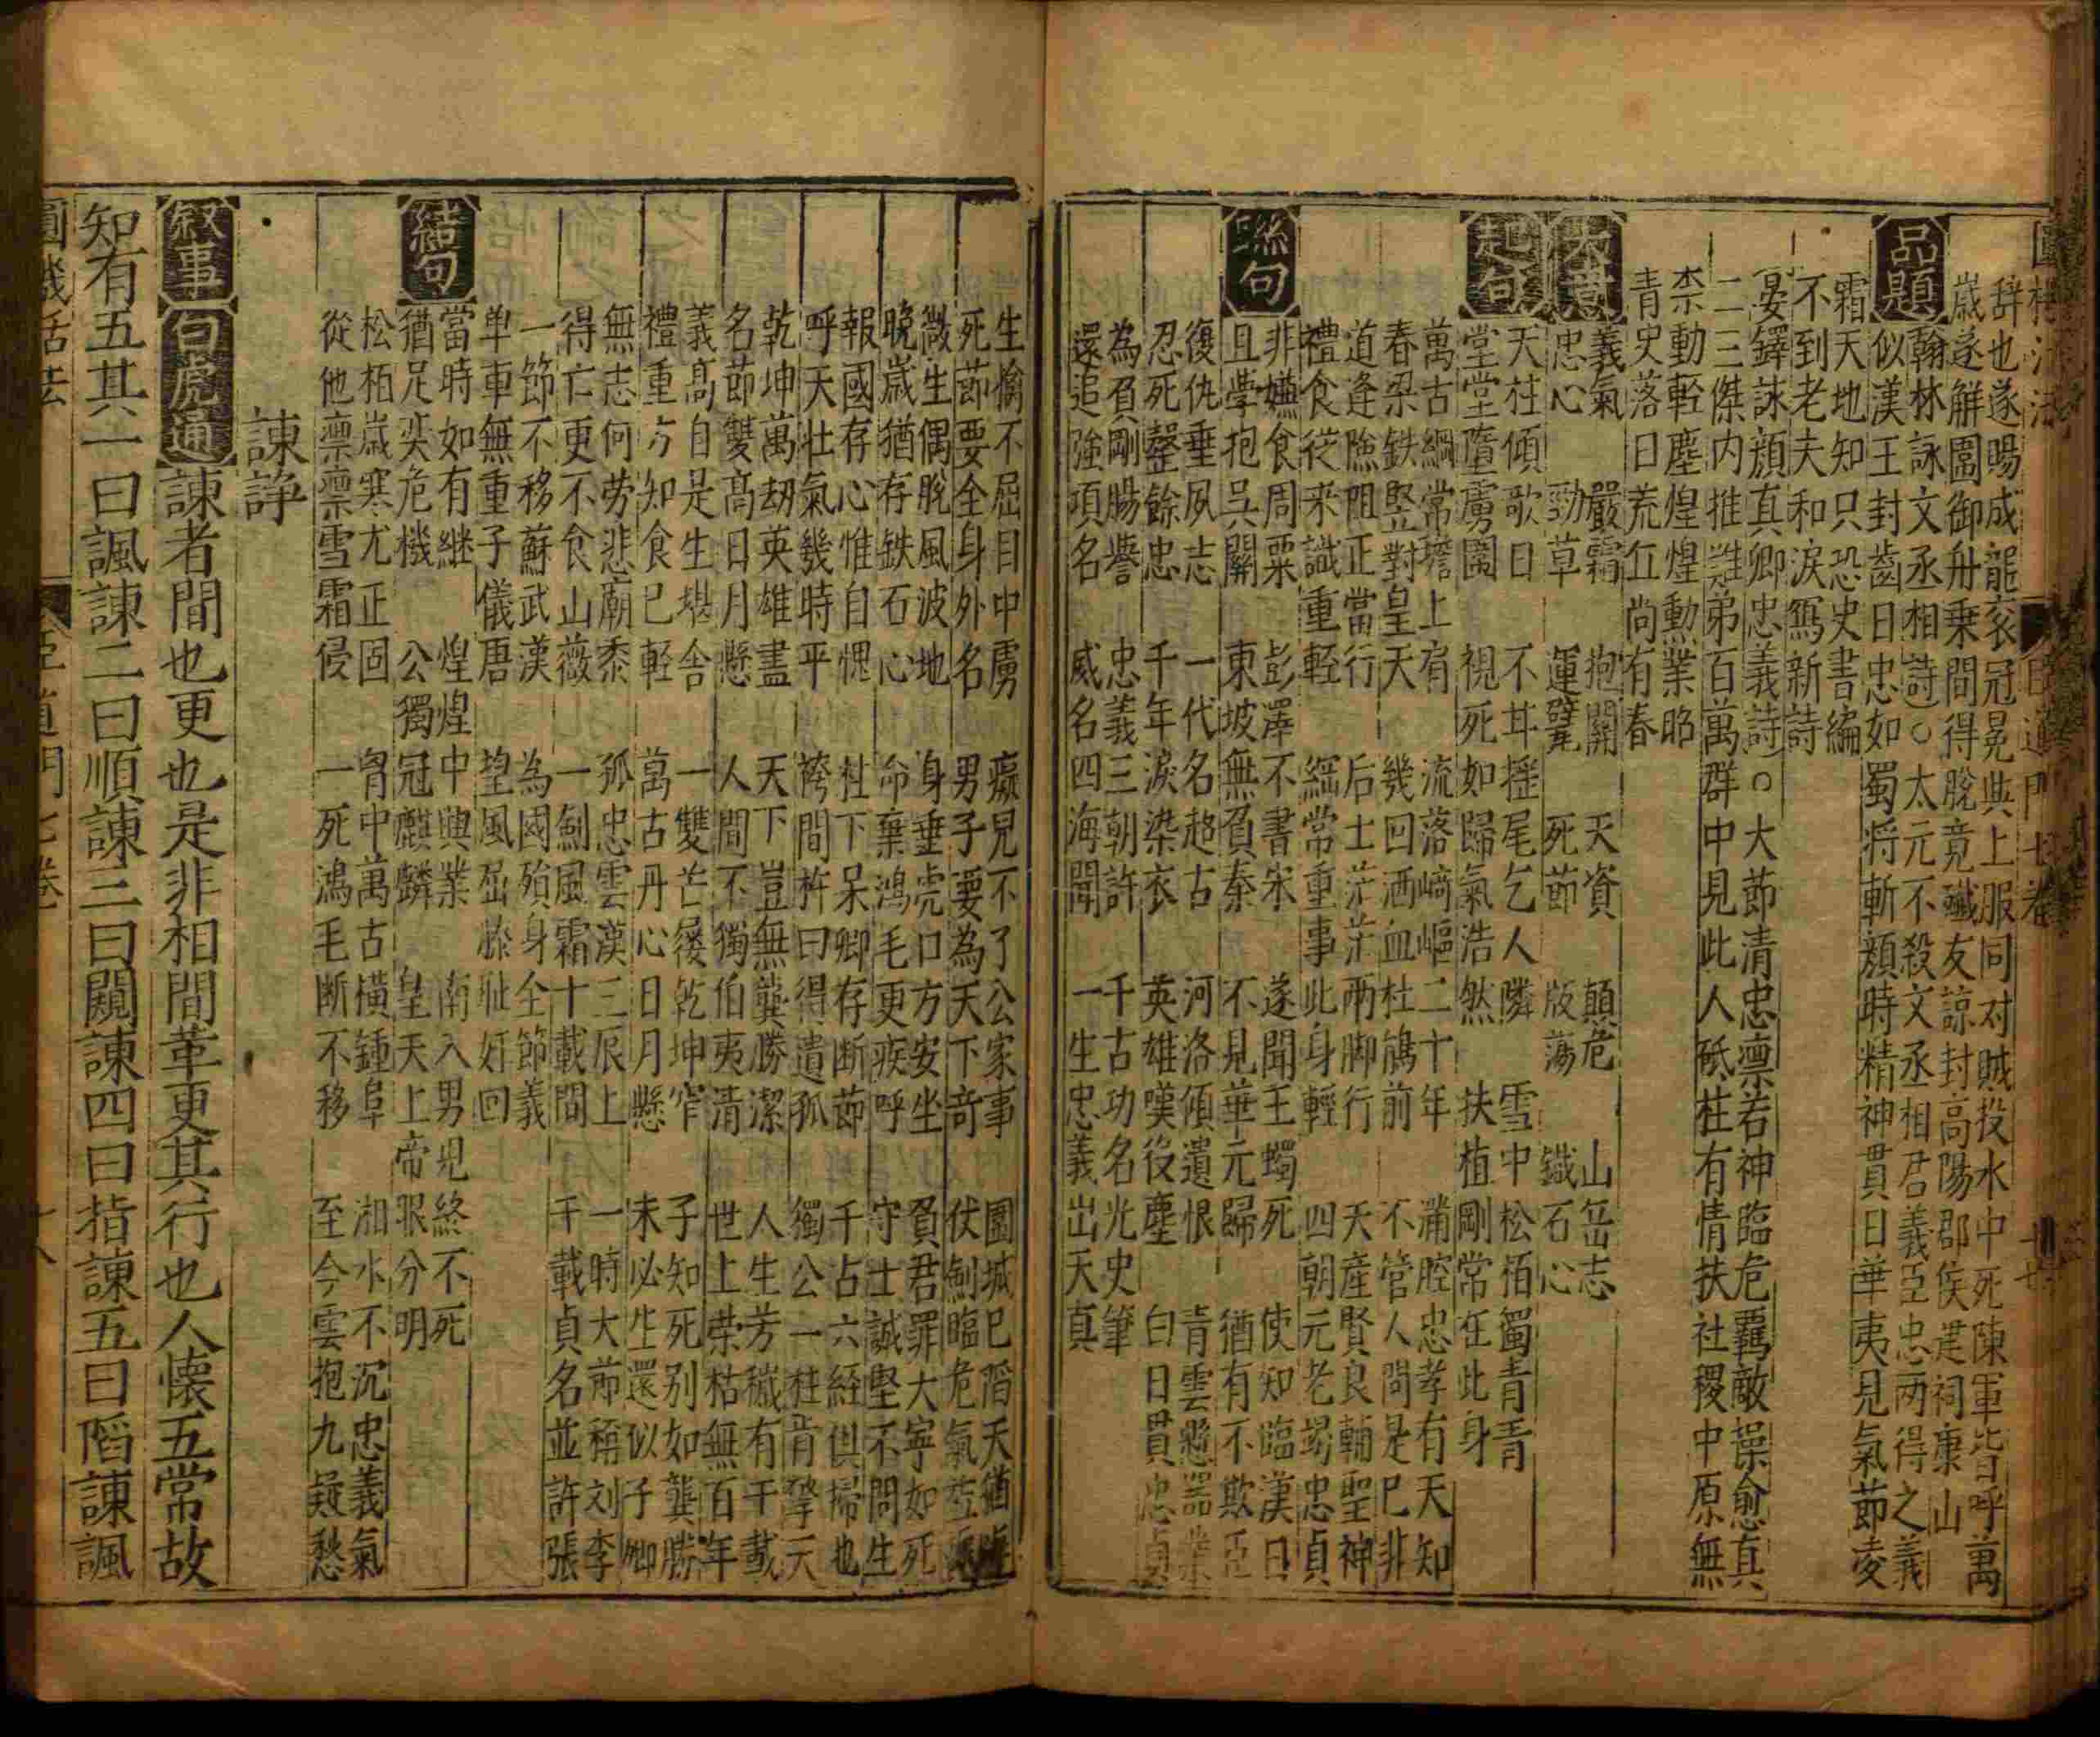 圓機活法 臣道門七卷
辭也遂賜成龍衮冠冕與上服同对賊投水中死陳軍皆呼萬
歲遂觧圍御舟乗間得脫竟殲友諒封高陽郡侯建祠康山
品題
翰林詠文丞相詩○太元不殺文丞相君義臣忠两得之義
似漢王封齒日忠如蜀将斬顔時精神貫日華夷見氣節凌
霜天地知只恐史書編
不到老夫和淚寫新詩
晏鐸詠顔真卿忠義詩○大節清忠凛若神臨危罵敵操愈真
二三傑内推難弟百萬群中見此人砥柱有情扶社稷中原無
柰動輕塵煌煌勲業昭
青史落日荒丘尚有春
大意
義氣 嚴霜 抱關 天資 顛危 山岳志
忠心 勁草 運甓 死節 版蕩 鐵石心
起句
天柱傾欹日 不其揺尾乞人憐 雪中松栢獨青青
堂堂墮虜圍 視死如歸氣浩然 扶植剛常在此身
萬古綱常擔上肩 流落崎嶇二十年 滿腔忠孝有天知
春梁鉄竪對皇天 幾回洒血杜鵑前 不管人間是巳非
道逢險阻正當行 后土茫茫兩脚行 天産賢良輔聖神
禮食從来識重輕 綱常重事此身輕 四朝元老竭忠貞
聯句
非嫌食周粟 彭澤不書宋 遂聞王蠋死 使知臨漢日
且學抱呉關 東坡無負秦 不見華元歸 猶有不欺臣
復仇垂夙志 一代名超古 河洛傾遺恨 青雲懸器業
忍死罄餘忠 千年淚染衣 英雄嘆役塵 白日貫忠貞
為負剛腸譽 忠義三朝許 千古功名光史筆
還追強項名 威名四海聞 一生忠義出天真
生擒不屈目中虜 癡兒不了公家事 圍城巳陷天猶
死莭要全身外名 男子要為天下竒 伏劍臨危氣
微生偶脫風波地 身垂虎口方安坐 負君罪大寧如死
晚歲猶存鉄石心 命棄鴻毛更疾呼 守土誠堅不問生
報國存心惟自愧 社下呆卿存断莭 千占六經俱掃也
呼天壮氣幾時平 袴間杵臼得遺孤 獨公一柱肯擎天
乾坤萬刼英雄盡 天下豈無龔勝潔 人生芳穢有千載
名莭雙髙日月懸 人間不獨伯夷清 世上荣枯無百年
義髙自是生堪舎 一雙芒屨乾坤窄 子知死别如龔勝
禮重方知食巳輕 萬古丹心日月懸 未必生還似子卿
無志何劳悲廟黍 孤忠雲漢三辰上 一時大莭稱刘李
得亡更不食山薇 一劍風霜十載間 千載貞名並許張
一節不移蘇武漢 為國殞身全節義
单車無重子儀唐 望風屈膝耻奸囬
結句
當時如有継 煌煌中興業 南入男児終不死
猶足奕危機 公獨冠麒麟 皇天上帝眼分明
松栢歳寒尤正固 胷中萬古横鍾阜 湘水不沉忠義氣
從他凛凛雪霜侵 一死鴻毛断不移 至今雲抱九疑愁
諫諍
叙事
白虎通 諫者間也更也是非相間革更其行也人懐五常故
知有五其一曰諷諫二曰順諫三曰闚諫四曰指諫五曰陷諫諷
圓機活法 臣道門七卷 十八